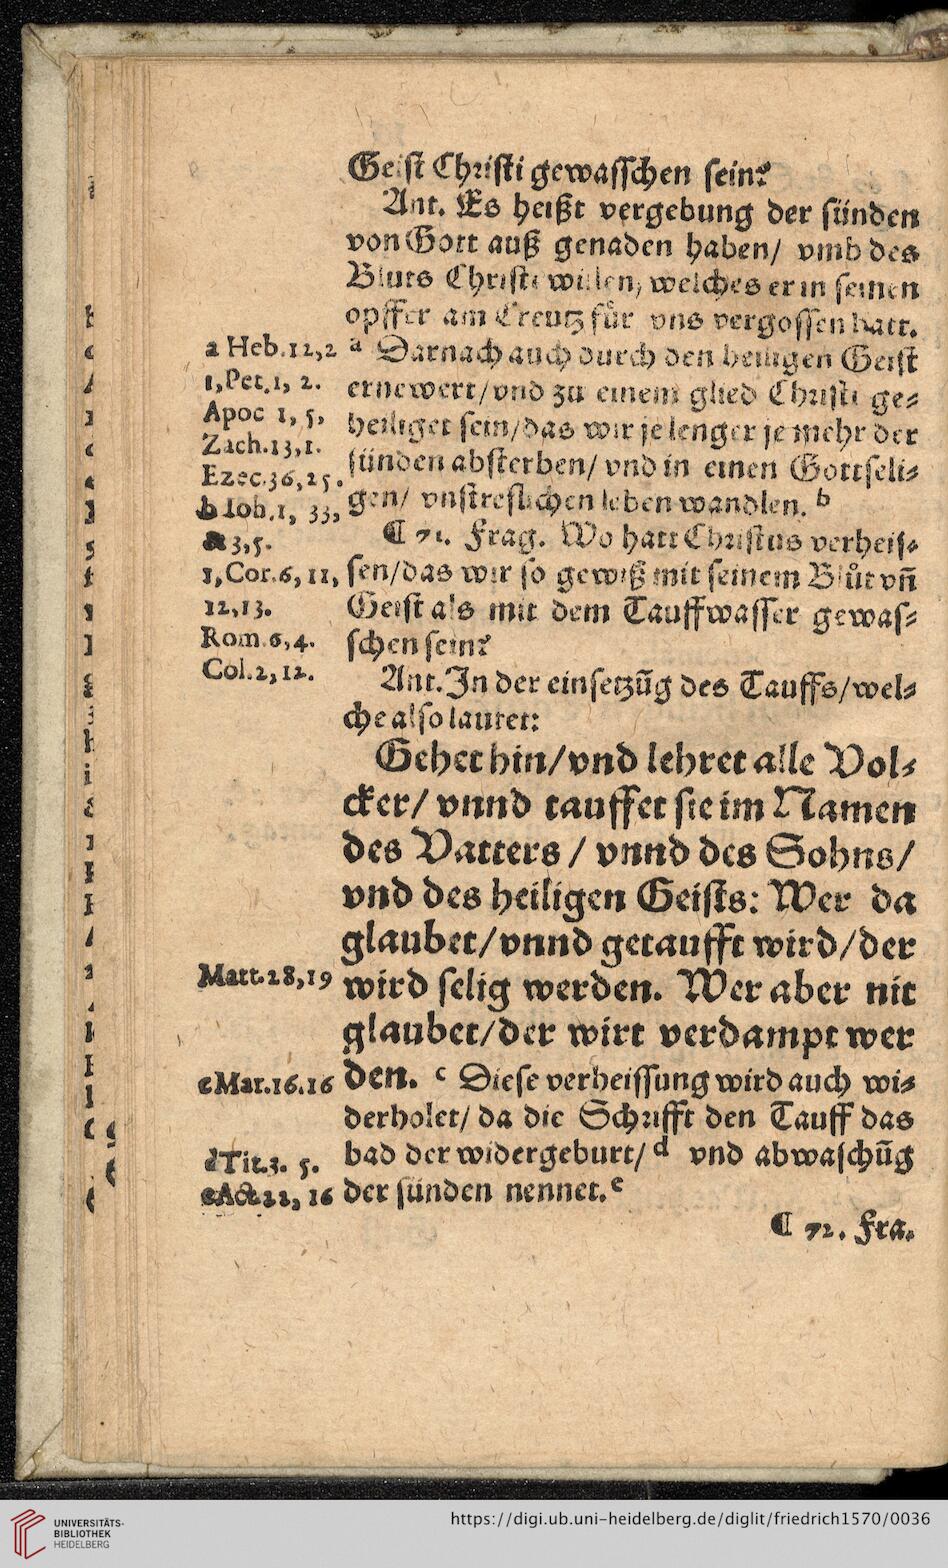 Geist Christi gewasschen sein?
Ant. Es heißt vergebung der sünden
von Gott auß genaden haben/ vmb des
Bluts Christi willen, welches er in seinen
opffer am Creutz für vns vergossen hatt.
a Heb.12,2 ª Darnach auch durch den heiligen Geist
1,Pet,1, 2. ernewert/vnd zu einem glied Christi ge⸗
Apoc 1, 5, heiliget sein/das wir je lenger je mehr der
Zach.13,1. sünden absterben/ vnd in einen Gottseli⸗
Ezec.36,25. gen/ vnstreflichen leben wandlen. b
b Ioh.1, 33,
& 3,5. ¶ 71. Frag. Wo hatt Christus verheis⸗
1,Cor.6, 11, sen/das wir so gewiß mit seinem Blůt vñ
12,13. Geist als mit dem Tauffwasser gewas⸗
Rom 6,4. schen sein?
Col.2,12. Ant. In der einsetzũg des Tauffs/wel⸗
che also lautet:
Gehet hin/vnd lehret alle Vol⸗
cker/ vnnd tauffet sie im Namen
des Vatters / vnnd des Sohns/
vnd des heiligen Geists: Wer da
glaubet/vnnd getaufft wird/der
Matt.28,19 wird selig werden. Wer aber nit
glaubet/der wirt verdampt wer
c Mar.16.16 den. c Diese verheissung wird auch wi⸗
derholet/ da die Schrifft den Tauff das
d Tit.3. 5. bad der widergeburt/ d vnd abwaschũg
e Act.22, 16 der sünden nennet. e
¶ 72. Fra.
UNIVERSITÄTS-
BIBLIOTHEK
HEIDELBERG
https://digi.ub.uni-heidelberg.de/diglit/friedrich1570/0036